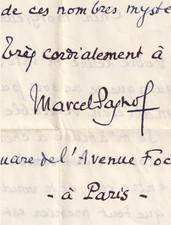 de ces nombres mysté
Très cordialement à
Marcel Pagnol
uare de l'Avenue Foc
- à Paris -